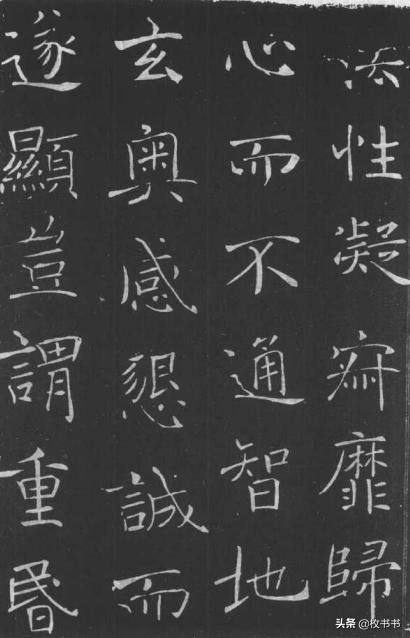 法性凝寂靡歸
心而不通智地
玄奥感懇誠而
遂顯豈謂重昬
头条 @牧书书